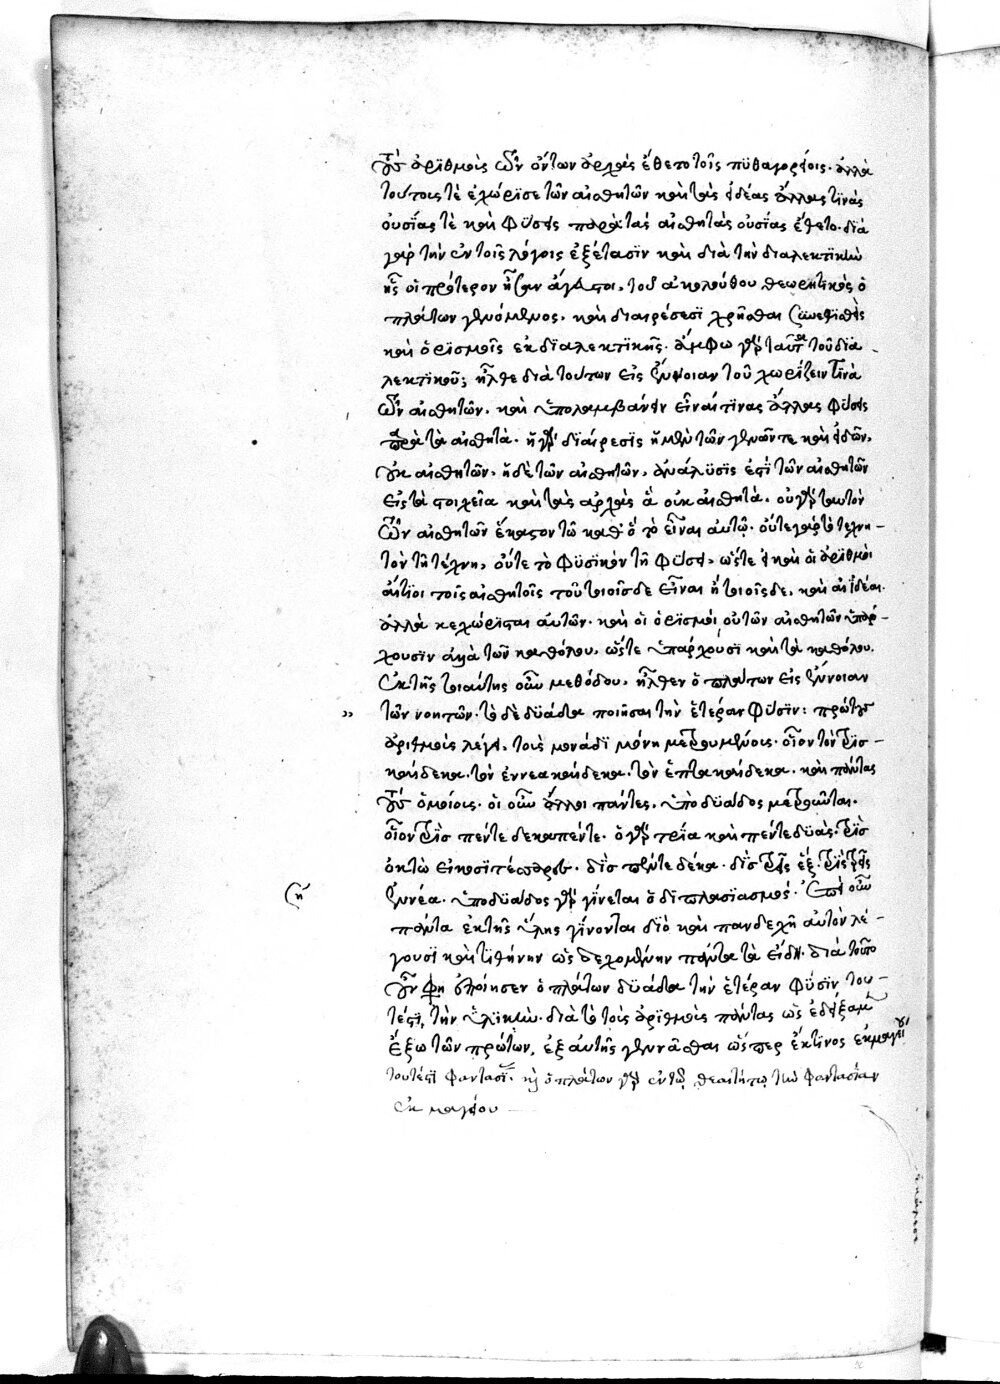 τοὺς ἀρϊθμοὺς τῶν ὄντων ἀρχὰς ἔθετο τοῖς πϋθαγορείοις· ἀλλὰ
τούτοις τὲ ἐχώρϊσε τῶν αἰσθητῶν καὶ τὰς ἰδέας ἄλλας τϊνὰς
οὐσΐας τὲ καὶ φύσεις παρὰ τὰς αἰσθητὰς οὐσΐας ἔθετο· διὰ
γὰρ τὴν ἐν τοῖς λόγοις ἐξέτασϊν καὶ διὰ τὴν διαλεκτϊκὴν
ἧς οἱ πρότερον ἦσαν ἄγευστοι, τοῦ ἀκολούθου θεωρητϊκὸς ὁ
πλάτων γενόμενος, καὶ διαιρέσεσϊ χρῆσθαι συνεθισθεὶς
καὶ ὁρϊσμοῖς ἐκ δϊαλεκτϊκῆς· ἄμφω γὰρ ταῦτα τοῦ δια
λεκτϊκοῦ· ἦλθε διὰ τούτων εἰς ἔννοιαν τοῦ χωρΐζειν τϊνὰ
τῶν αἰσθητῶν, καὶ ὑπολαμβάνειν εἶναί τϊνας ἄλλας φύσεις
παρὰ τὰ αἰσθητά· ἡ γὰρ δϊαίρεσϊς ἡ μὲν τῶν γενῶν τε καὶ εἰδῶν,
οὐκ αἰσθητῶν, ἡ δὲ τῶν αἰσθητῶν, ἀνάλϋσϊς ἐστὶ τῶν αἰσθητῶν
εἰς τὰ στοιχεῖα καὶ τὰς ἀρχὰς ἃ οὐκ αἰσθητά. οὐ γὰρ ταυτὸν
τῶν αἰσθητῶν ἕκαστον τῶ καθ' ὃ τὸ εἶναι αὐτῷ· οὔτε γὰρ τὸ τεχνη-
τὸν τῇ τέχνῃ, οὔτε τὸ φϋσϊκὸν τῇ φύσει, ὥστε εἰ καὶ οἱ ἀρϊθμοὶ
αἴτϊοι τοῖς αἰσθητοῖς τοῦ τοιοῖσδε εἶναι ἢ τοιοῖσδε, καὶ αἱ ἰδέαι.
ἀλλὰ κεχώρϊσται αὐτῶν· καὶ οἱ ὁρϊσμοὶ οὐ τῶν αἰσθητῶν ὑπάρ-
χουσϊν ἀλλὰ τῶν καθόλου, ὥστε ὑπάρχουσϊ καὶ τὰ καθόλου.
ἐκ τῆς τοιαύτης οὖν μεθόδου, ἦλθεν ὁ πλάτων εἰς ἔννοιαν
τῶν νοητῶν· τὸ δὲ δϋάδα ποιῆσαι τὴν ἑτέραν φύσϊν: πρώτους
ἀριθμοὺς λέγει, τοὺς μονάδϊ μόνῃ μετρουμένους· οἷον τὸν τρϊσ-
καίδεκα· τὸν ἐννεακαίδεκα· τὸν ἑπτακαίδεκα. καὶ πάντας
τοὺς ὁμοίους· οἱ οὖν ἄλλοι πάντες, ὑπὸ δϋάδος μετροῦνται.
οἷον τρὶς πέντε δεκαπέντε· ὁ γὰρ τρία καὶ πέντε δϋάς· τρϊς
ὀκτὼ εἰκοσϊτέσσαρα· δϊς πέντε δέκα· δϊς τρεῖς ἕξ· τρϊς τρεῖς
ἐννέα· ὑπὸ δϋάδος γὰρ γίνεται ὁ διπλασϊασμός. ἐπεὶ οὖν
πάντα ἐκ τῆς ὕλης γίνονται διὸ καὶ πανδεχῆ αὐτὸν λέ-
γουσϊ καὶ τϊθήνην ὡς δεχομένην πάντα τὰ εἴδη· διὰ τοῦτο
οὖν φη ἐποίησεν ὁ πλάτων δϋάδα τὴν ἑτέραν φύσϊν του-
τέστι, τὴν ὑλϊκὴν· διὰ τὸ τοὺς ἀρϊθμοὺς πάντας ὡς ἐδείξαμεν
ἔξω τῶν πρώτων, ἐξ αὐτῆς γεννᾶσθαι ὥσπερ ἔκ τϊνος ἐκμαγείου
τουτέστι φαντασϊ. καὶ ὁ πλάτων γὰρ ἐν τῷ θεαιτήτῳ τὴν φαντασίαν
ἐκμαγεῖον